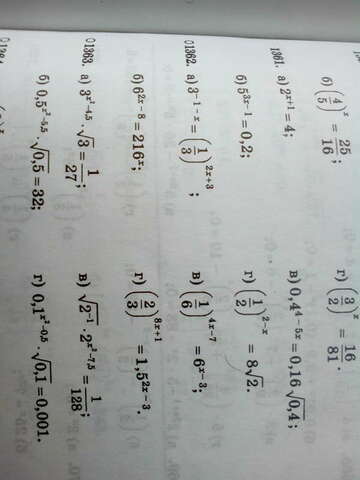 б) (4/5)^x = 25/16; г) (3/2)^x = 16/81.
1361. а) 2^(x+1) = 4; в) 0,4^(4−5x) = 0,16√0,4;
б) 5^(3x−1) = 0,2; г) (1/2)^(2−x) = 8√2.
О1362. а) 3^(−1−x) = (1/3)^(2x+3); в) (1/6)^(4x−7) = 6^(x−3);
б) 6^(2x−8) = 216^x; г) (2/3)^(8x+1) = 1,5^(2x−3).
О1363. а) 3^(x²−4,5) · √3 = 1/27; в) √(2^(−1)) · 2^(x²−7,5) = 1/128;
б) 0,5^(x²−5,5) · √0,5 = 32; г) 0,1^(x²−0,5) · √0,1 = 0,001.